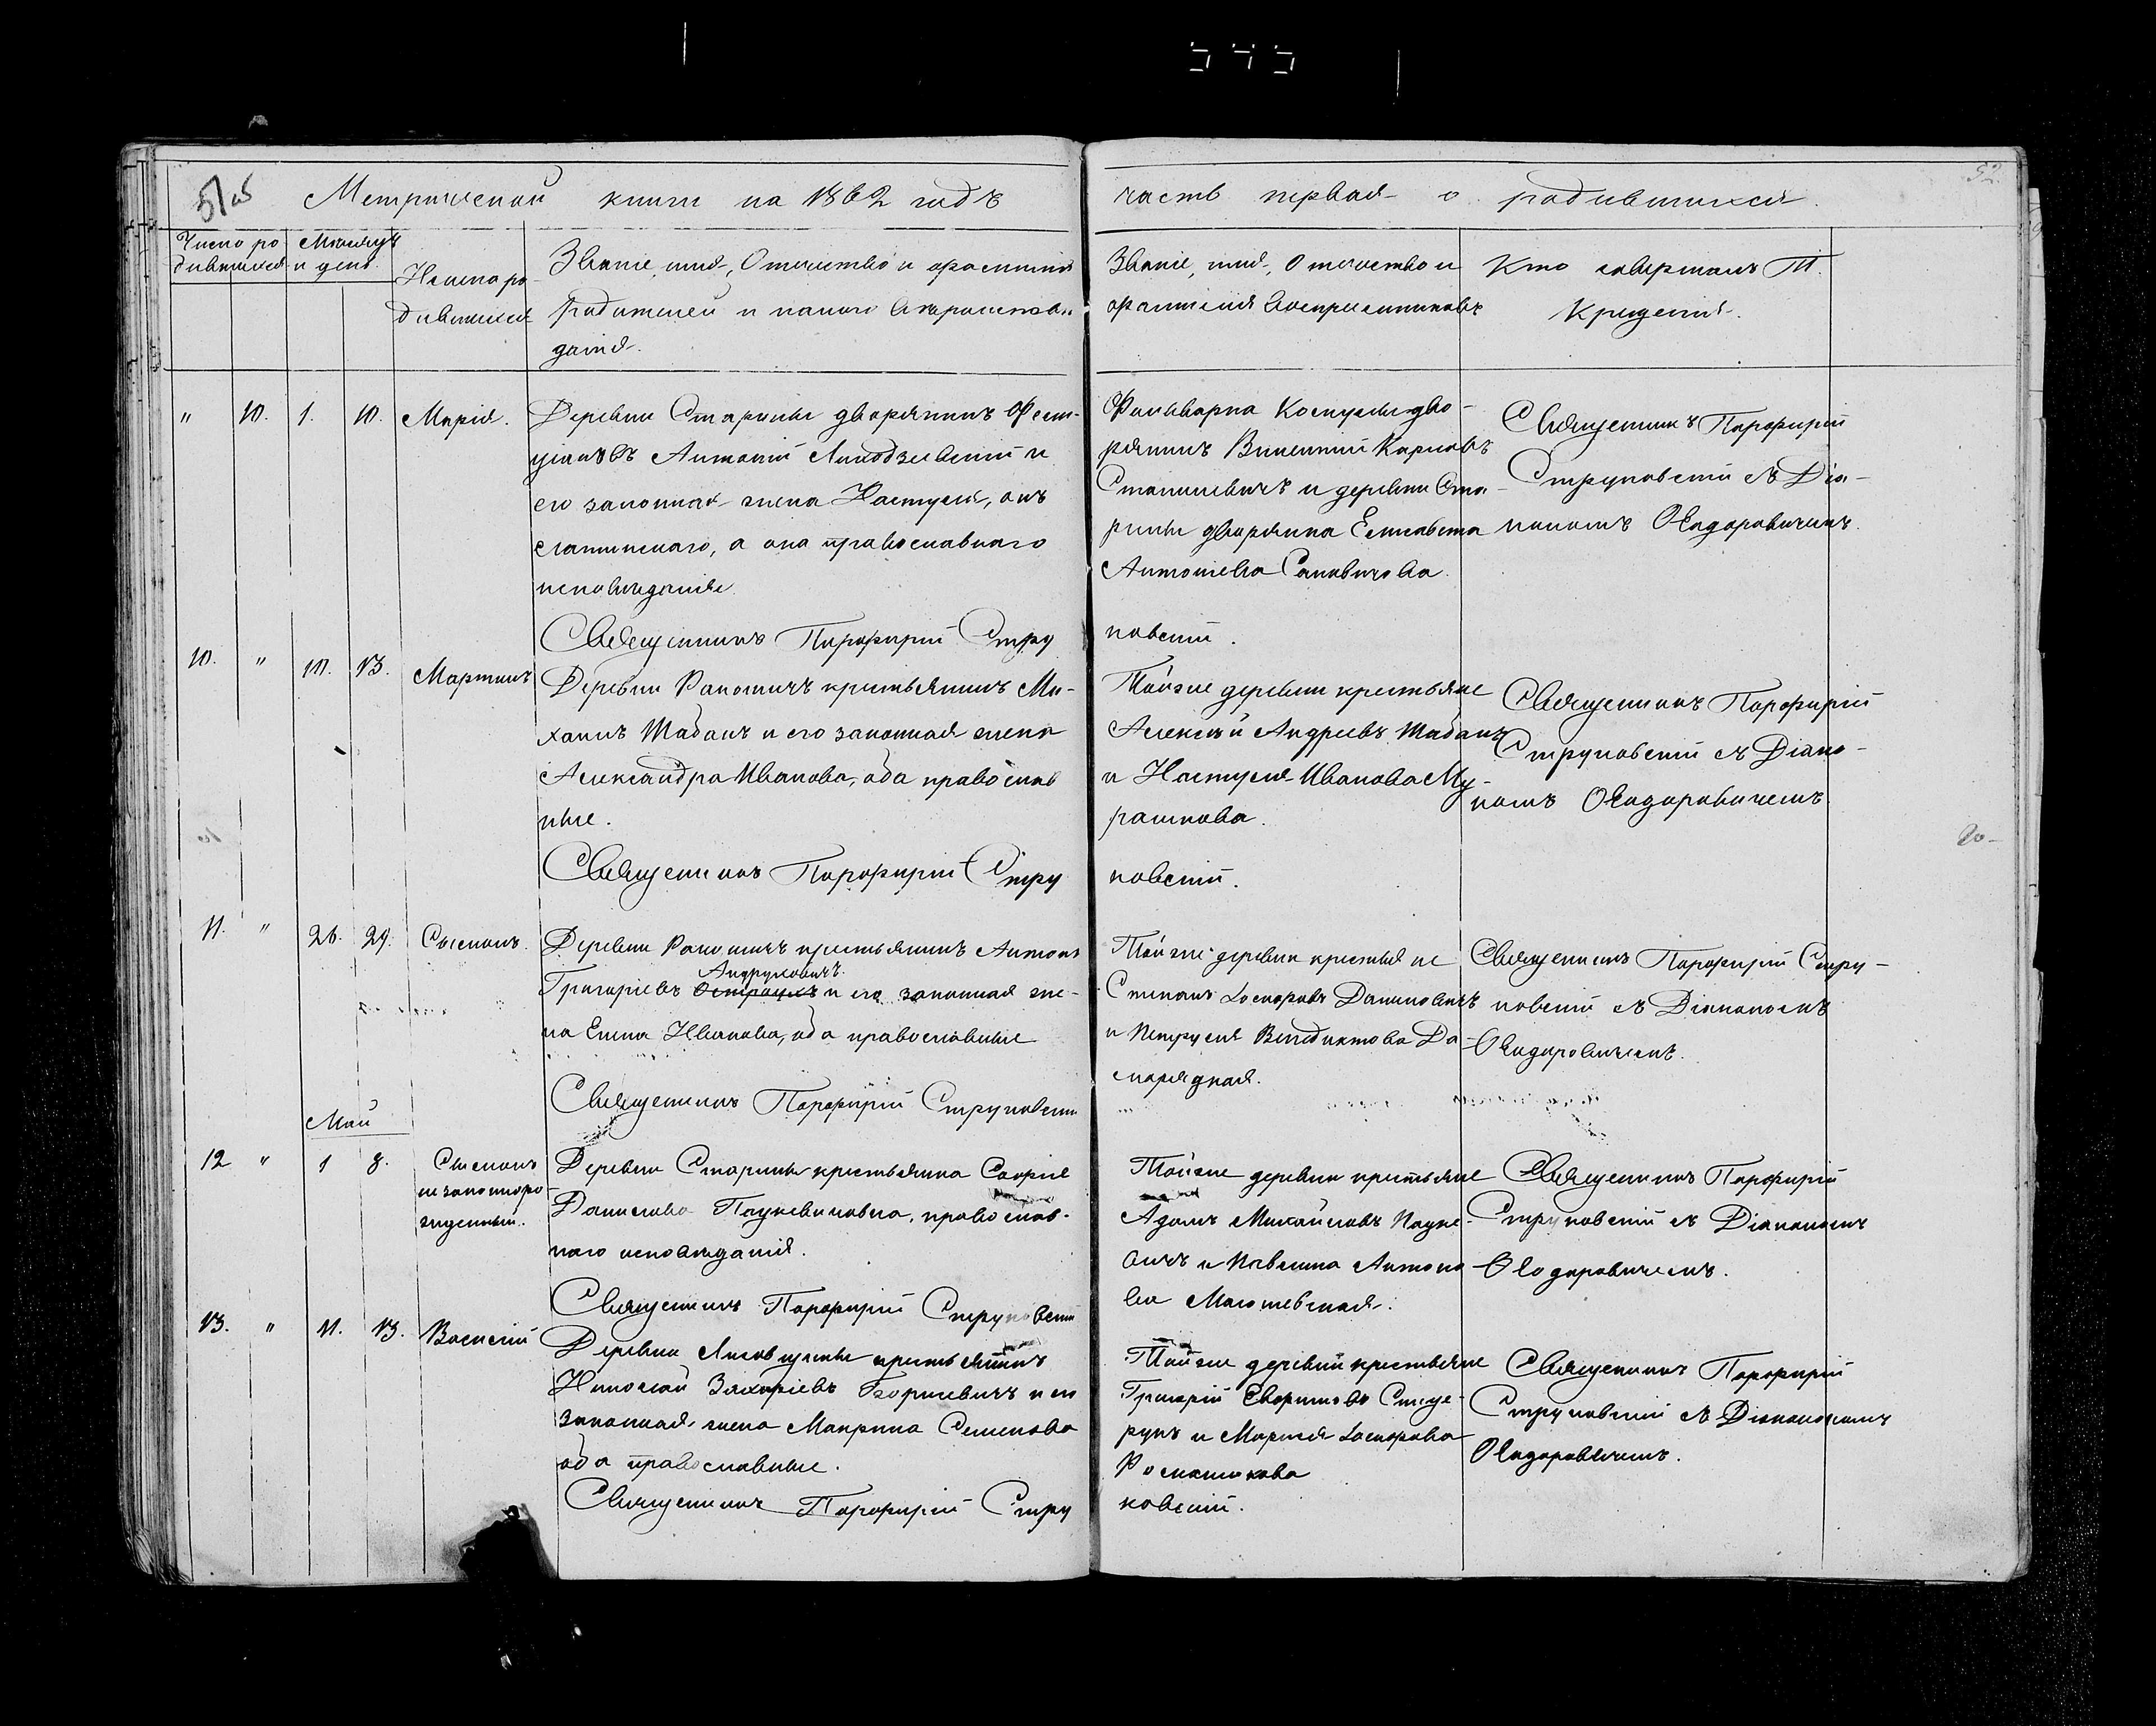 Метрической книги на 1862 годъ
часть первая о родившихся.
52
Число ро
дившихся
Мѣсяцъ
и день
Имена ро-
дившихся
Званіе, имя, Отчество и фамиліи
Родителей и какого вѣроисповѣ
данія.
Званіе, имя, Отчество и
фамилія воспріемниковъ
Кто совершалъ Т.
Крещенія.
" 10. 1. 10. Марія.
Деревни Старины дворянинъ
Антоній и
его законная жена Настусія, онъ
латинскаго, а она православнаго
исповѣданія
Священникъ Порфирій Стру
Фольварка дво-
рянинъ Викентій Карловъ
Станкевичъ и деревни Ста-
рины дворянка Елисавета
Антоніева
ковскій.
Священникъ Порфирій
Струковскій съ Діа-
кономъ Ѳеодоровичемъ.
10. " 10. 13. Мартинъ
Деревни крестьянинъ Ми-
хаилъ Шабанъ и его законная жена
Александра Иванова, оба православ
ные.
Священникъ Порфирій Стру
Тойже деревни крестьяне
Алексѣй Андреевъ Шабанъ
и Настусія Иванова Му-
рашкова.
ковскій.
Священникъ Порфирій
Струковскій съ Діако-
номъ Ѳеодоровичемъ.
20-
11. " 26. 29. Стефанъ.
Деревни крестьянинъ Антонъ
Андруковичъ.
Григоріевъ и его законная же-
на Елена Иванова, оба православные
Священникъ Порфирій Струковскій
Тойже деревни крестьяне
Степанъ Даниловичъ
и Петруся Венедиктова До
морядная.
Священникъ Порфирій Стру-
ковскій съ Діакономъ
Ѳеодоровичемъ.
Май
12 " 1 8. Стефанъ
незаконноро-
жденный.
Деревни Старины крестьянка Софія
Данилова православ-
наго исповѣданія.
Священникъ Порфирій Струковскій
Тойже деревни крестьяне
Адамъ Михайловъ Пауке-
вичъ и Павлина Антоно
ва
Священникъ Порфирій
Струковскій съ Діакономъ
Ѳеодоровичемъ.
13. " 11. 13. Василій
Деревни крестьянинъ
Николай Захаріевъ и его
законная жена Макрина Семенова
оба православные.
Священникъ Порфирій Стру
Тойже деревни крестьяне
Григорій
и Марися
ковскій.
Священникъ Порфирій
Струковскій съ Діакономъ
Ѳеодоровичемъ.